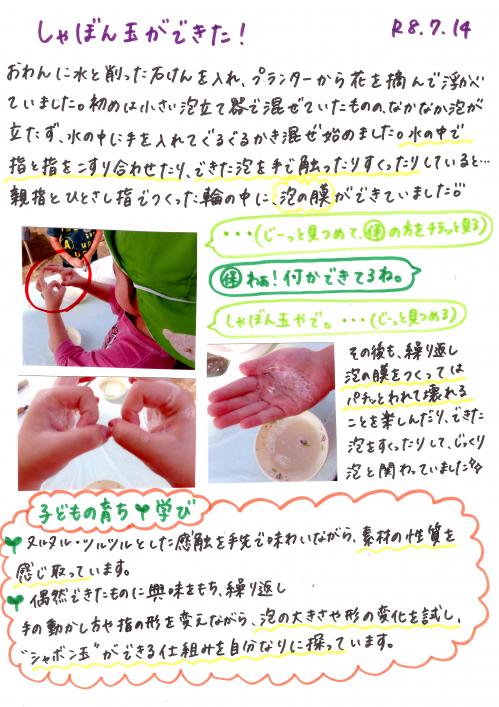 しゃぼん玉ができた!
R8.7.14
おわんに水と削った石けんを入れ、プランターから花を摘んで浮かべ
ていました。初めは小さい泡立て器で混ぜていたものの、なかなか泡が
立たず、水の中に手を入れてぐるぐるかき混ぜ始めました。水の中で
指と指をこすり合わせたり、できた泡を手で触ったりすくったりしていると…
親指とひとさし指でつくった輪の中に、泡の膜ができていました!!
・・・(じーっと見つめて、保の方をチラッと見る)
保 わぁ!何かできてるね。
しゃぼん玉やで。・・・(じーっと見つめる)
その後も、繰り返し
泡の膜をつくっては
パチッとわれて壊れる
ことを楽しんだり、できた
泡をすくったりして、じっくり
泡と関わっていました
子どもの育ち 学び
ヌルヌル・ツルツルとした感触を手先で味わいながら、素材の性質を
感じ取っています。
偶然できたものに興味をもち、繰り返し
手の動かし方や指の形を変えながら、泡の大きさや形の変化を試し、
"シャボン玉"ができる仕組みを自分なりに探っています。